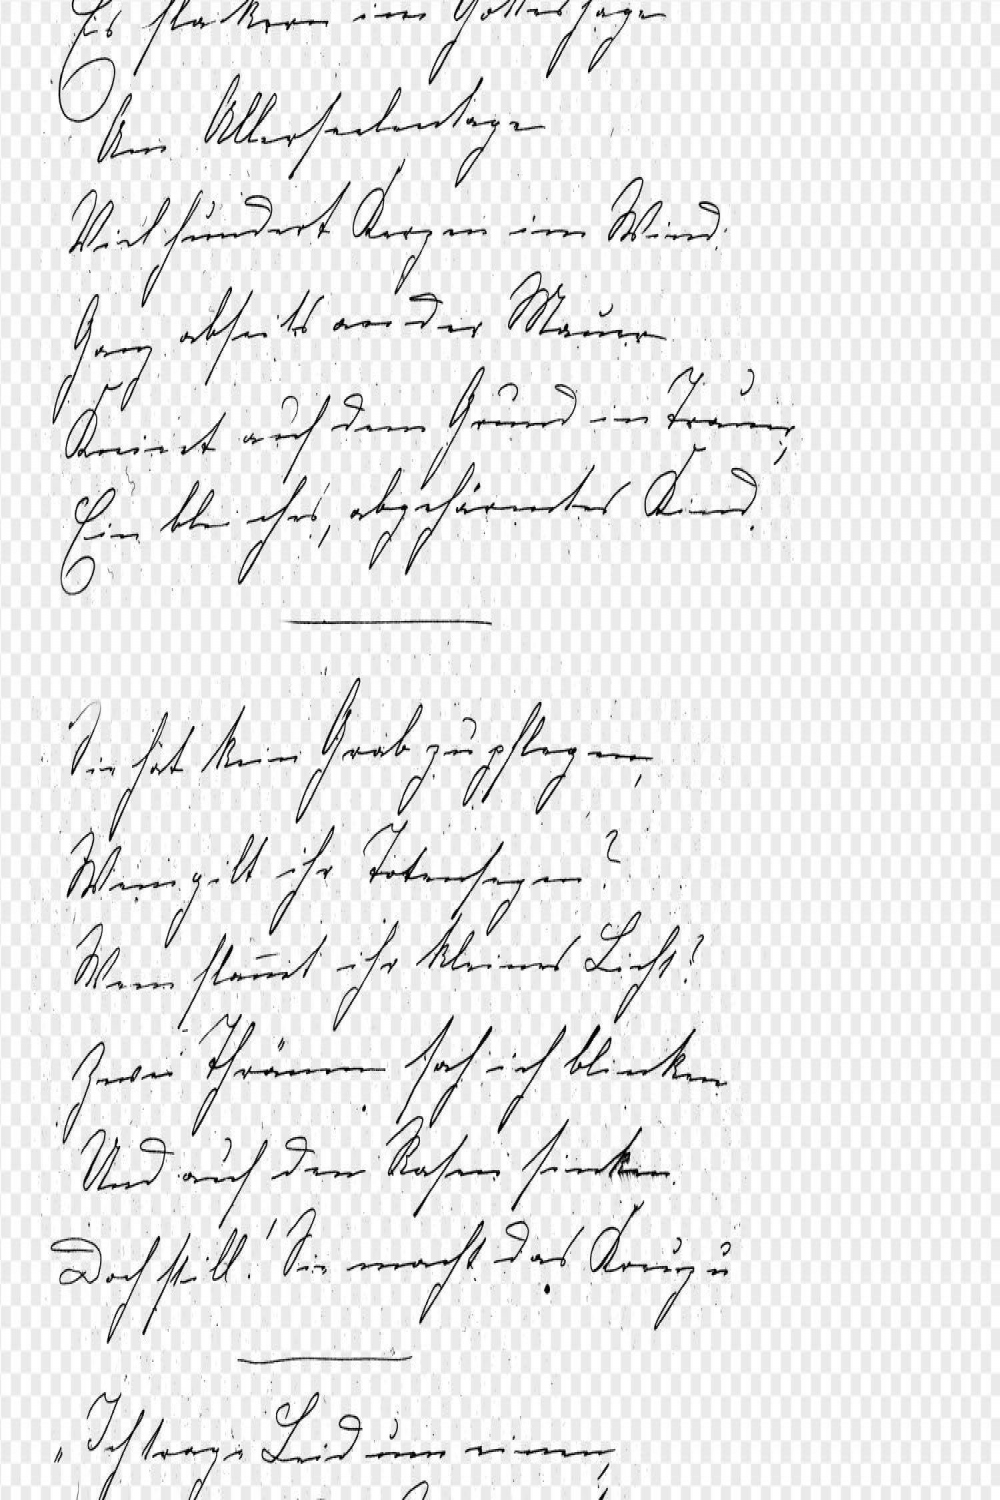 Es flackern im Gotteshage
Am Allerseelentage
Viel hundert Kerzen im Wind.
Ganz abseits an der Mauer
Kniet auf dem Grund in Trauer,
Ein bleiches, abgehärmtes Kind.
Sie hat kein Grab zu pflegen,
Wem gilt ihr Totensegen?
Wem flam̅t ihr kleines Licht?
Zwei Thränen sah ich blinken
Und auf den Rasen sinken.
Doch still! Sie macht das Kreuz u
„Ich trage Leid um einen,